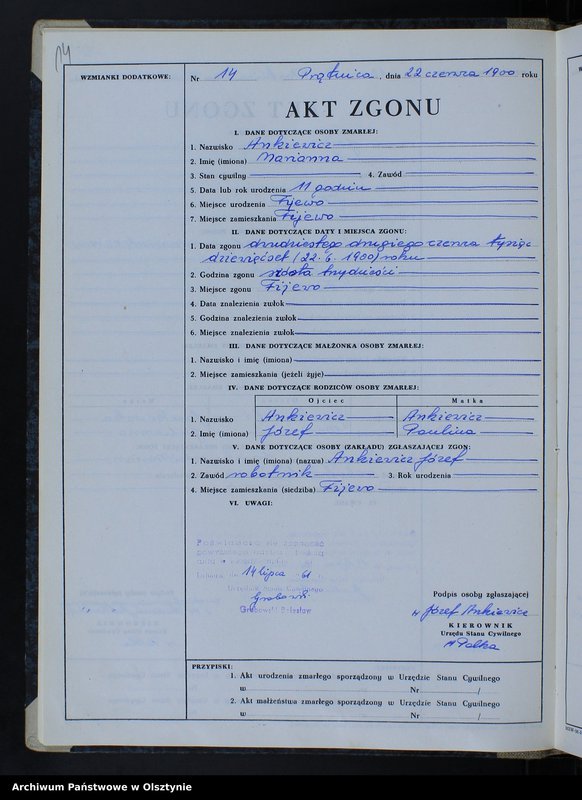 14
WZMIANKI DODATKOWE:
Nr 14 Prątnica, dnia 22 czerwca 1900 roku
AKT ZGONU
I. DANE DOTYCZĄCE OSOBY ZMARŁEJ:
1. Nazwisko Ankiewicz
2. Imię (imiona) Marianna
3. Stan cywilny 4. Zawód
5. Data lub rok urodzenia 11 godzin
6. Miejsce urodzenia Fijewo
7. Miejsce zamieszkania Fijewo
II. DANE DOTYCZĄCE DATY I MIEJSCA ZGONU:
1. Data zgonu dwudziestego drugiego czerwca tysiąc
dziewięćset (22. 6. 1900) roku
2. Godzina zgonu szósta trydzieści
3. Miejsce zgonu Fijewo
4. Data znalezienia zwłok
5. Godzina znalezienia zwłok
6. Miejsce znalezienia zwłok
III. DANE DOTYCZĄCE MAŁŻONKA OSOBY ZMARŁEJ:
1. Nazwisko i imię (imiona)
2. Miejsce zamieszkania (jeżeli żyje)
IV. DANE DOTYCZĄCE RODZICÓW OSOBY ZMARŁEJ:
Ojciec Matka
1. Nazwisko Ankiewicz Ankiewicz
2. Imię (imiona) Józef Paulina
V. DANE DOTYCZĄCE OSOBY (ZAKŁADU) ZGŁASZAJĄCEJ ZGON:
1. Nazwisko i imię (imiona) (nazwa) Ankiewicz Józef
2. Zawód robotnik 3. Rok urodzenia
4. Miejsce zamieszkania (siedziba) Fijewo
VI. UWAGI:
Poświadcza się zgodność
14 lipca 61
Urzędu Stanu Cywilnego
Grabowski
Grabowski Bolesław
Podpis osoby zgłaszającej
Józef Ankiewicz
KIEROWNIK
Urzędu Stanu Cywilnego
PRZYPISKI:
1. Akt urodzenia zmarłego sporządzony w Urzędzie Stanu Cywilnego
w Nr /
2. Akt małżeństwa zmarłego sporządzony w Urzędzie Stanu Cywilnego
w Nr /
Archiwum Państwowe w Olsztynie